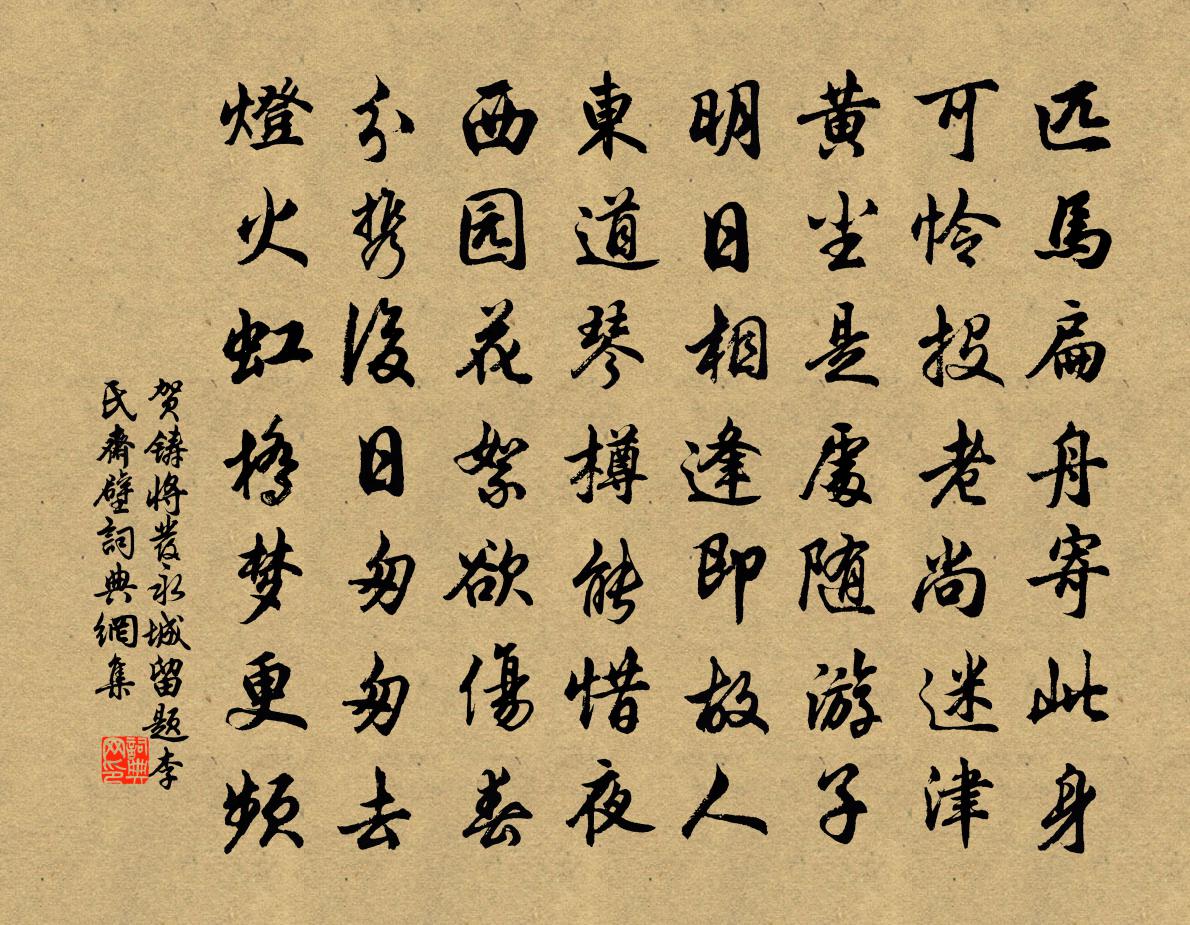 匹馬扁舟寄此身
可怜投老尚迷津
黄尘是處随游子
明日相逢即故人
東道琴樽能惜夜
西园花絮欲傷春
分携後日匆匆去
燈火虹橋梦更频
贺鑄將發永城留题李
民齋壁詞典網集
詞典
网印